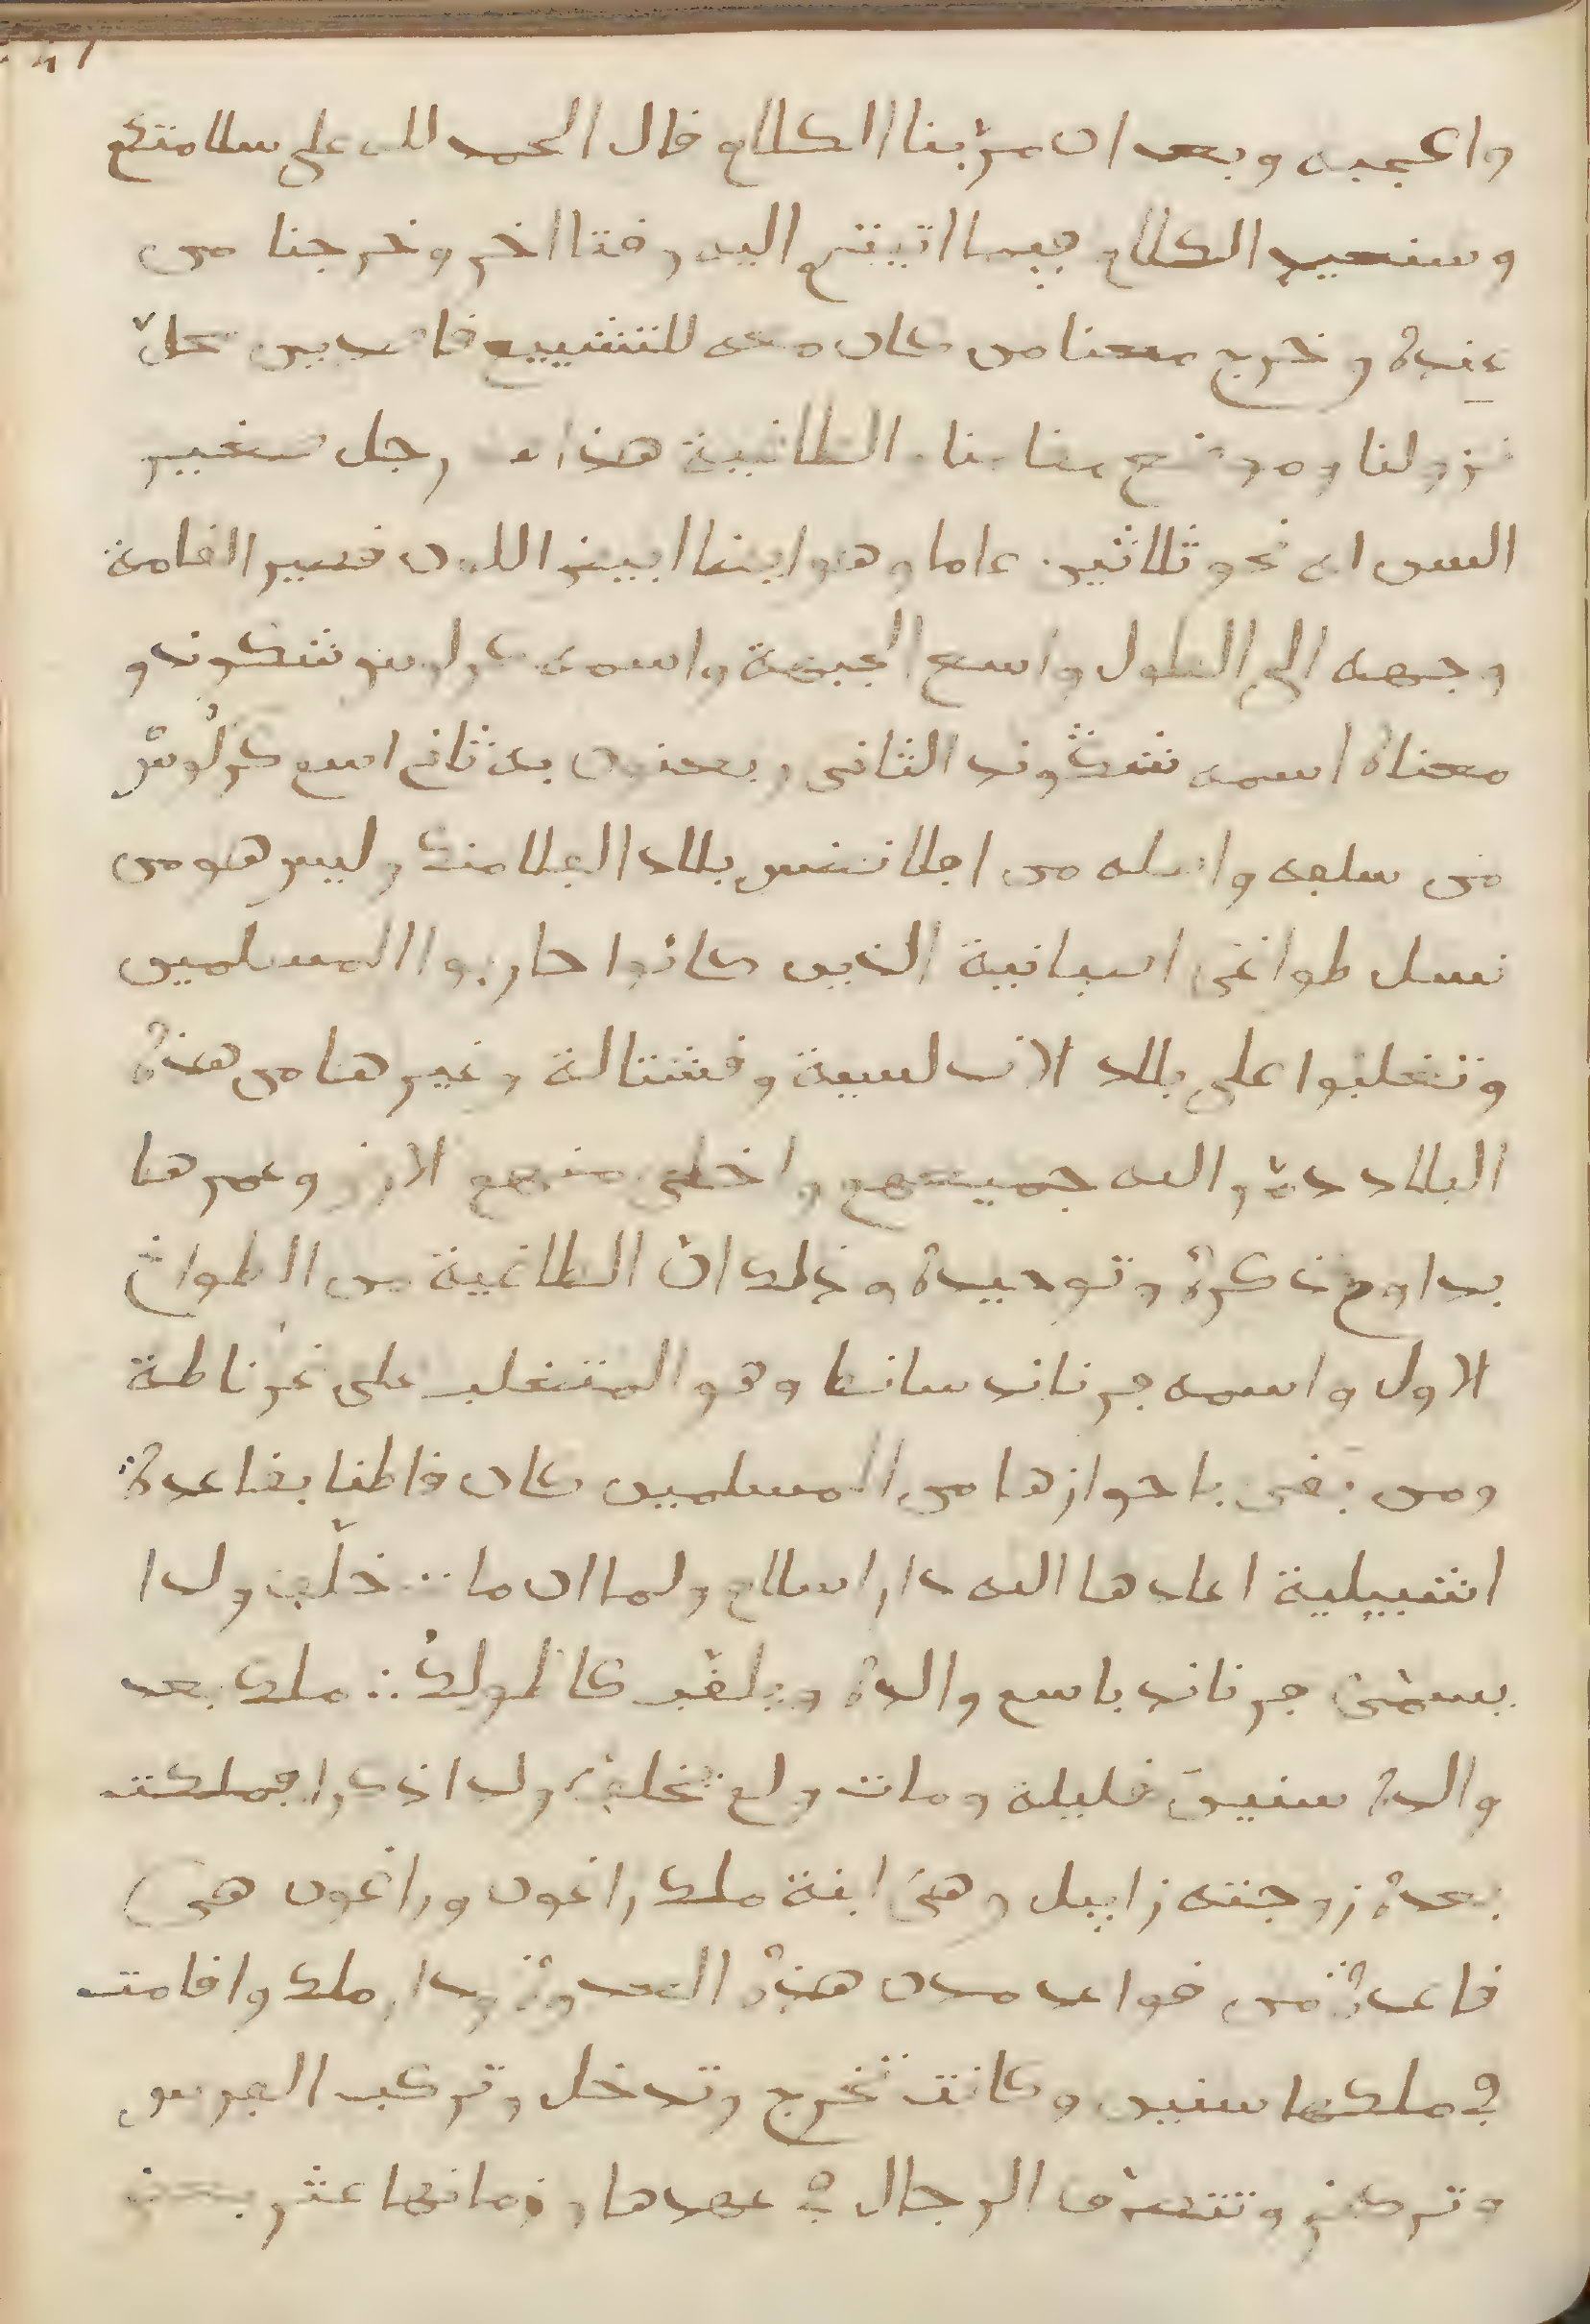 واعجبه وبعد ان مر بنا الكلام قال الحمد لله على سلامتكم
وسنعيد الكلام فيما اتيتم اليه وقتا اخر وخرجنا من
عنده وخرج معنا من كان معه للتشييع قاصدين محلّ
نزولنا وموضع مقامنا الطاغية هذا رجل صغير
السن ابن نحو ثلاثين عاما وهو ايضا ابيض اللون قصير القامة
وجهه الى الطول واسع الجبهة واسمه كرلوس شكوندو
معناه اسمه شكوند الثاني ويعنون به ثاني اسم كرلُوسْ
من سلفه واصله من افلانضس بلاد الفلامنك وليس هو من
نسل طواغي اسبانية الذين كانوا حاربوا المسلمين
وتغلبوا على بلاد الاندلسية وقشتالة وغيرها من هذه
البلاد دمّر الله جميعهم واخلى منهم الارض وعمرها
بداوم ذكره وتوحيده وذلك انّ الطاغية من الطواغ
الاول واسمه فرناند سانط وهو المتغلب على غرناطة
ومن بقي باحوازها من المسلمين كان قاطنا بقاعدة
اشبيلية اعادها الله دار اسلام ولما ان مات خلّف ولدا
يسمّى فرناند باسم والده ويلقّب كاطوليكُ ∴ ملك بعد
والده سنين قليلة ومات ولم يخلف ولدا ذكرا فملكت
بعده زوجته زابيل وهيَ ابنة ملك راغون وراغون هي
قاعدة من قواعد مدن هذه العدوة ودار ملك واقامت
في ملكها سنين وكانت تخرج وتدخل وتركب الفرس
وتركض وتتصرف الرجال في عهدها وزمانها عثر بعض